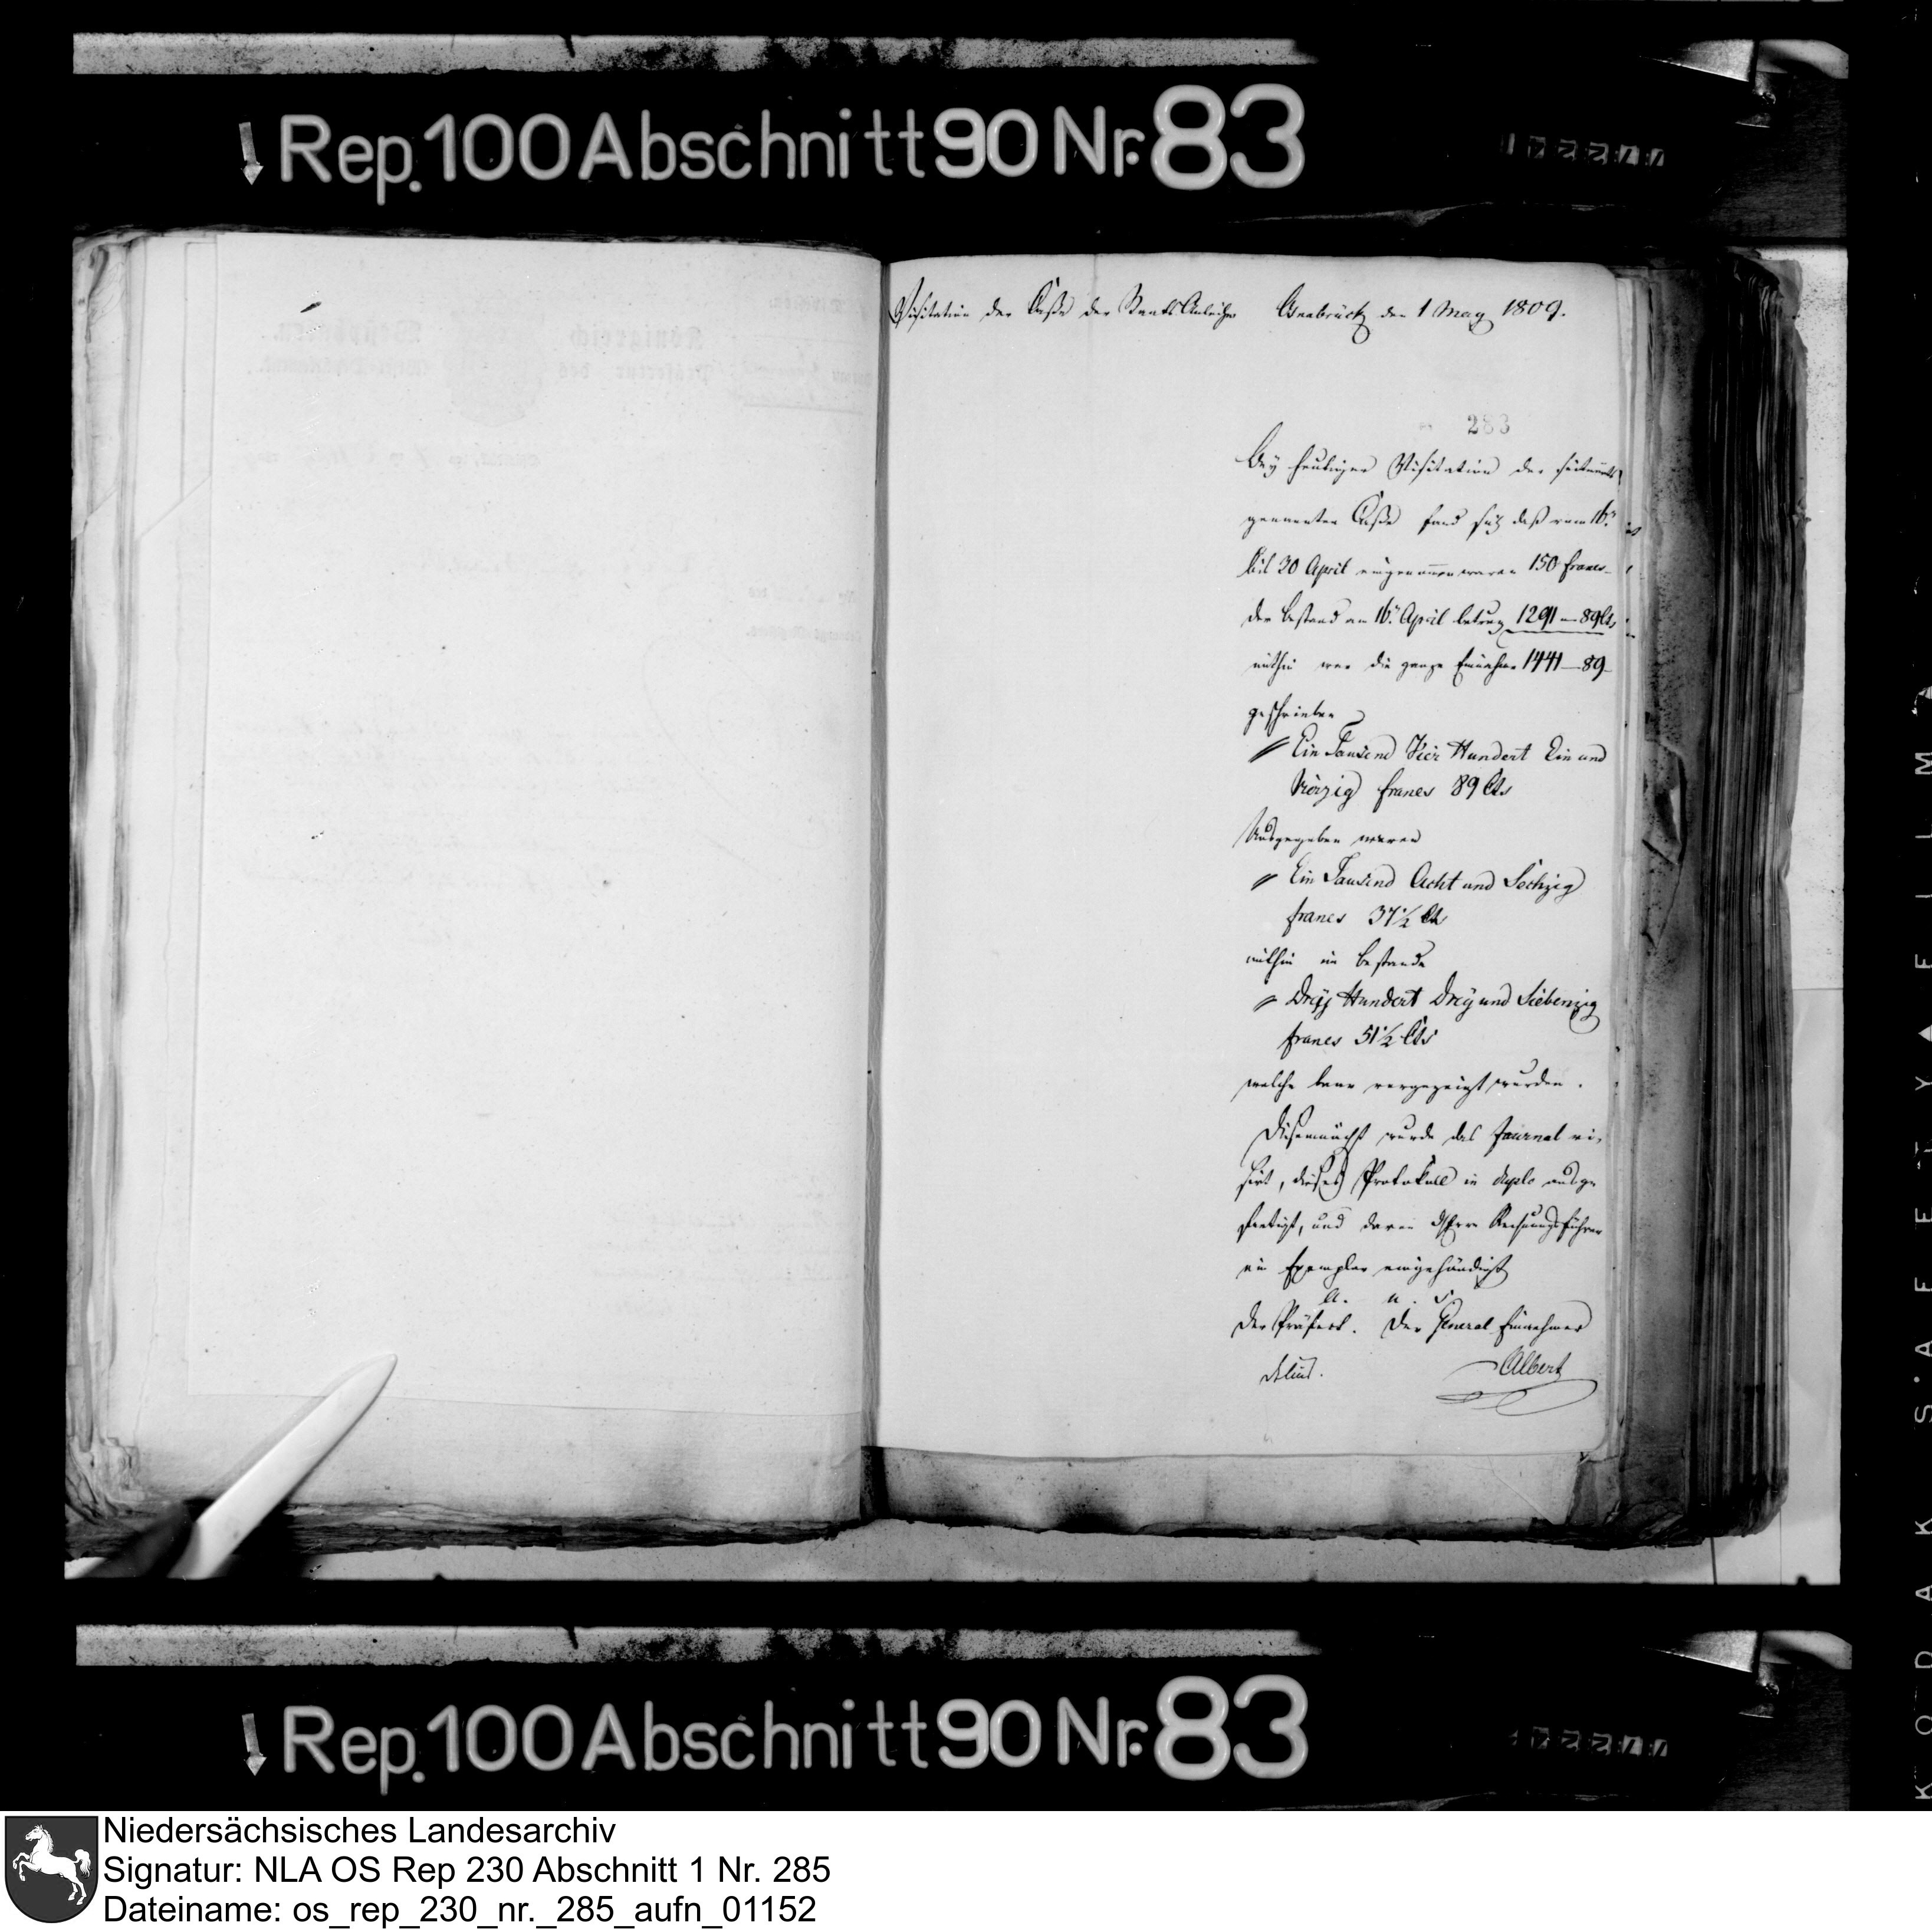 Rep. 100 Abschnitt 90 Nr. 83
Visitation der Caße der StaatsAnleihe Osnabrück den 1 May 1809.
283
Bey heutiger Visitation der seitwärts
genannten Caße fand sich daß vom 16n
bis 30 April eingenommen waren 150 francs
der Bestand am 16n April betrug 1291 — 89 Cts
mithin war die ganze Einnahme 1441 — 89
geschrieben
Ein Tausend Vier Hundert Ein und
Vierzig francs 89 Cts
Ausgegeben waren
Ein Tausend Acht und Sechzig
francs 37 1/2 Cts
mithin in Bestande
Drey Hundert Drey und Siebenzig
francs 51 1/2 Cts
welche baar vorgezeigt wurden.
Diesemnächst wurde das Journal vi-
sirt, dieses Protokoll in duplo ausge
fertigt, und davon dHerrn Rechnungsführer
ein Exemplar eingehändigt
a. u. s.
Der Präfect. Der General Einnehmer
Delius. Albert
Rep. 100 Abschnitt 90 Nr. 83
Niedersächsisches Landesarchiv
Signatur: NLA OS Rep 230 Abschnitt 1 Nr. 285
Dateiname: os_rep_230_nr._285_aufn_01152
KODAK SAFETY FILM